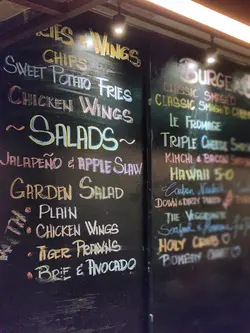 FRIES & WINGS
CHIPS
SWEET POTATO FRIES
CHICKEN WINGS
~ SALADS ~
JALAPEÑO & APPLE SLAW
GARDEN SALAD
• PLAIN
• CHICKEN WINGS
• TIGER PRAWNS
• BRIE & AVOCADO
WITH
BURGERS
CLASSIC SMASHED
CLASSIC SMASHED
LE FROMAGE
TRIPLE CHEESE
KIMCHI & BACON
HAWAII 5-0
DOWN & DIRTY
THE VEGGIE
HOLY CRAB
BOMBAY